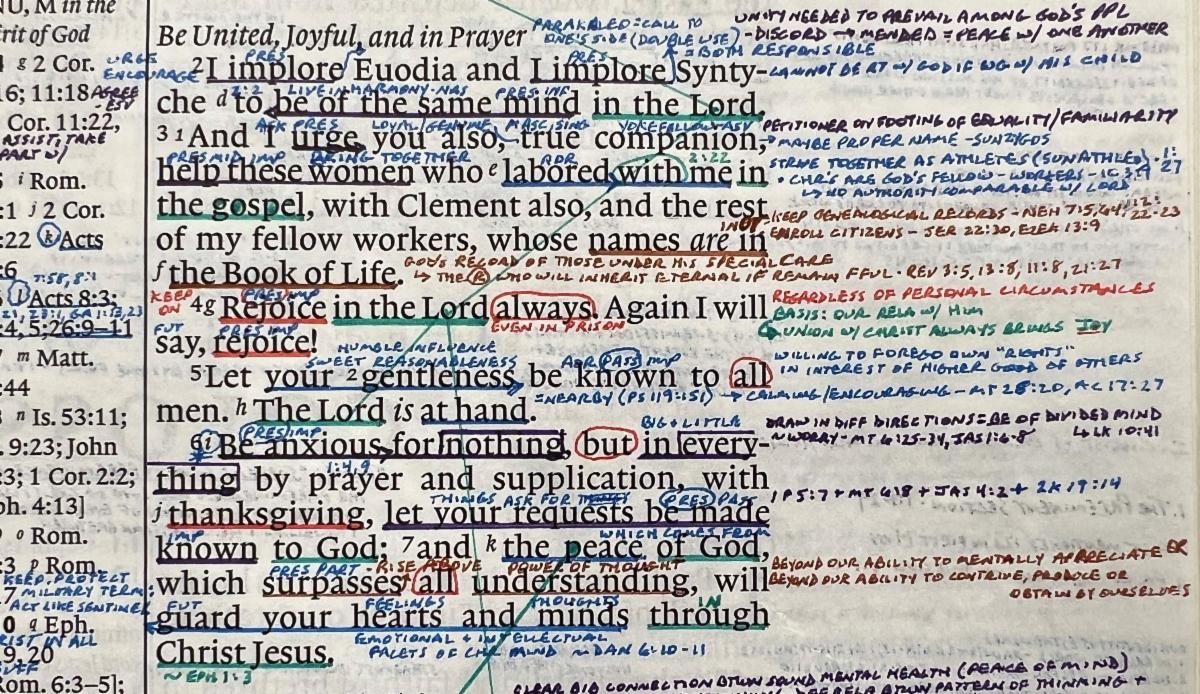 NU, M in the
rit of God
g 2 Cor.
URGE
ENCOURAGE
16; 11:18
AGREE
Cor. 11:22,
ASSIST, TAKE
PART W/
i Rom.
:1 j 2 Cor.
:22 k Acts
:6 7:58, 8:1
l Acts 8:3;
:4, 5; 26:9–11
m Matt.
:44
n Is. 53:11;
9:23; John
:3; 1 Cor. 2:2;
ph. 4:13]
o Rom.
:3 p Rom.
KEEP, PROTECT
7 MILITARY TERM:
ACT LIKE SENTINEL
0 q Eph.
RIST IN ALL
9, 20
Rom. 6:3–5];
Be United, Joyful, and in Prayer
PRES PRES
2 I implore Euodia and I implore Synty-
2:2 LIVE IN HARMONY-NAS PRES INF
che d to be of the same mind in the Lord.
ASK PRES LOYAL/GENUINE MASC SING YOKEFELLOW
3 1 And I urge you also, true companion,
PRES MID IMP BRING TOGETHER AOR 2:22
help these women who e labored with me in
the gospel, with Clement also, and the rest
of my fellow workers, whose names are in
GOD'S RECORD OF THOSE UNDER HIS SPECIAL CARE
f the Book of Life.
↳ THE R WHO WILL INHERIT ETERNAL IF REMAIN FFUL - REV 3:5, 13:8, 11:8, 21:27
KEEP ON PRES IMP
4 g Rejoice in the Lord always. Again I will
FUT PRES IMP EVEN IN PRISON
say, rejoice!
HUMBLE INFLUENCE
SWEET REASONABLENESS AOR PASS IMP
5 Let your 2 gentleness be known to all
=NEARBY (PS 119:151) → CALMING/ENCOURAGING - MT 28:20, AC 17:27
men. h The Lord is at hand.
PRES IMP BIG + LITTLE
6 i Be anxious for nothing, but in every-
1:4, 9
thing by prayer and supplication, with
THINGS ASK FOR PRES PASS
j thanksgiving, let your requests be made
IMP WHICH COMES FROM
known to God; 7 and k the peace of God,
PRES PART - RISE ABOVE POWER OF THOUGHT
which surpasses all understanding, will
FUT FEELINGS THOUGHTS IN
guard your hearts and minds through
EMOTIONAL + INTELLECTUAL
Christ Jesus.
FACETS OF MIND ~ DAN 6:10-11
~ EPH 1:3
PARAKALEO = CALL TO
ONE'S SIDE (DOUBLE USE)
= BOTH RESPONSIBLE
UNITY NEEDED TO PREVAIL AMONG GOD'S PPL
- DISCORD → MENDED = PEACE W/ ONE ANOTHER
CANNOT BE AT W/ GOD IF W/ HIS CHILD
PETITIONER ON FOOTING OF EQUALITY/FAMILIARITY
MAYBE PROPER NAME - SUNZUGOS
STRIVE TOGETHER AS ATHLETES (SUNATHLEO) - 1:27
• CHR'S ARE GOD'S FELLOW-WORKERS - 1C 3:9
↳ NO AUTHORITY COMPARABLE W/ LORD
KEEP GENEALOGICAL RECORDS - NEH 7:5, 64, 12:22-23
ENROLL CITIZENS - JER 22:30, EZEK 13:9
REGARDLESS OF PERSONAL CIRCUMSTANCES
BASIS: OUR RELA W/ HIM
UNION W/ CHRIST ALWAYS BRINGS JOY
WILLING TO FOREGO OWN "RIGHTS"
IN INTEREST OF HIGHER GOOD OF OTHERS
DRAW IN DIFF DIRECTIONS = BE OF DIVIDED MIND
~WORRY - MT 6:25-34, JAS 1:6-8 ↳ LK 10:41
1P 5:7 + MT 6:8 + JAS 4:2 + 2K 19:14
BEYOND OUR ABILITY TO MENTALLY APPRECIATE OR
BEYOND OUR ABILITY TO CONTRIVE, PRODUCE OR
OBTAIN BY OURSELVES
CLEAR BIB CONNECTION BTWN SOUND MENTAL HEALTH (PEACE OF MIND)
RELA BTWN PATTERN OF THINKING +